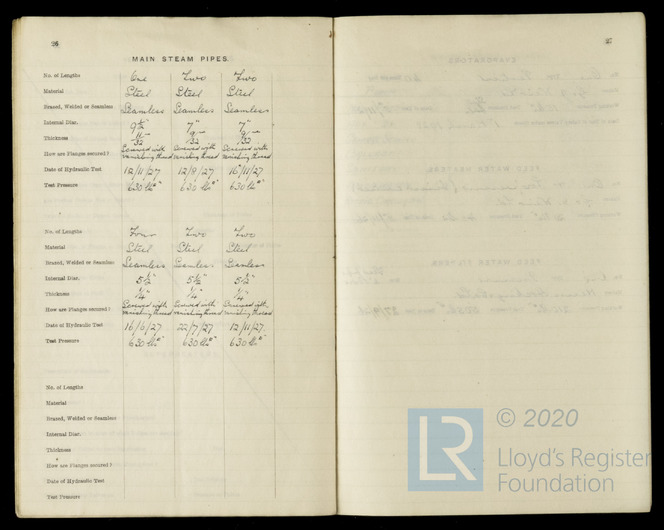 26
MAIN STEAM PIPES
No. of Lengths One Two Two
Material Steel Steel Steel
Brazed, Welded or Seamless Seamless Seamless Seamless
Internal Diar. 9½" 7" 7"
Thickness 11/32" 9/32" 9/32"
How are Flanges secured? Screwed with vanishing thread Screwed with vanishing thread Screwed with vanishing thread
Date of Hydraulic Test 12/11/27 12/9/27 16/11/27
Test Pressure 630 lbs 630 lbs 630 lbs
No. of Lengths Four Two Two
Material Steel Steel Steel
Brazed, Welded or Seamless Seamless Seamless Seamless
Internal Diar. 5½" 5½" 5½"
Thickness ¼" ¼" ¼"
How are Flanges secured? Screwed with vanishing thread Screwed with vanishing thread Screwed with vanishing thread
Date of Hydraulic Test 16/6/27 22/7/27 12/11/27
Test Pressure 630 lbs 630 lbs 630 lbs
No. of Lengths
Material
Brazed, Welded or Seamless
Internal Diar.
Thickness
How are Flanges secured?
Date of Hydraulic Test
Test Pressure
27
LR
© 2020
Lloyd's Register
Foundation